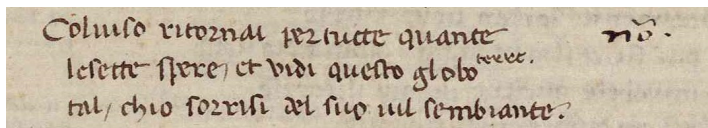 Coluiso ritornai per tucte quante nō.
lesette spere, et vidi questo globo terre.
tal, chio sorrisi del suo uil sembiante.